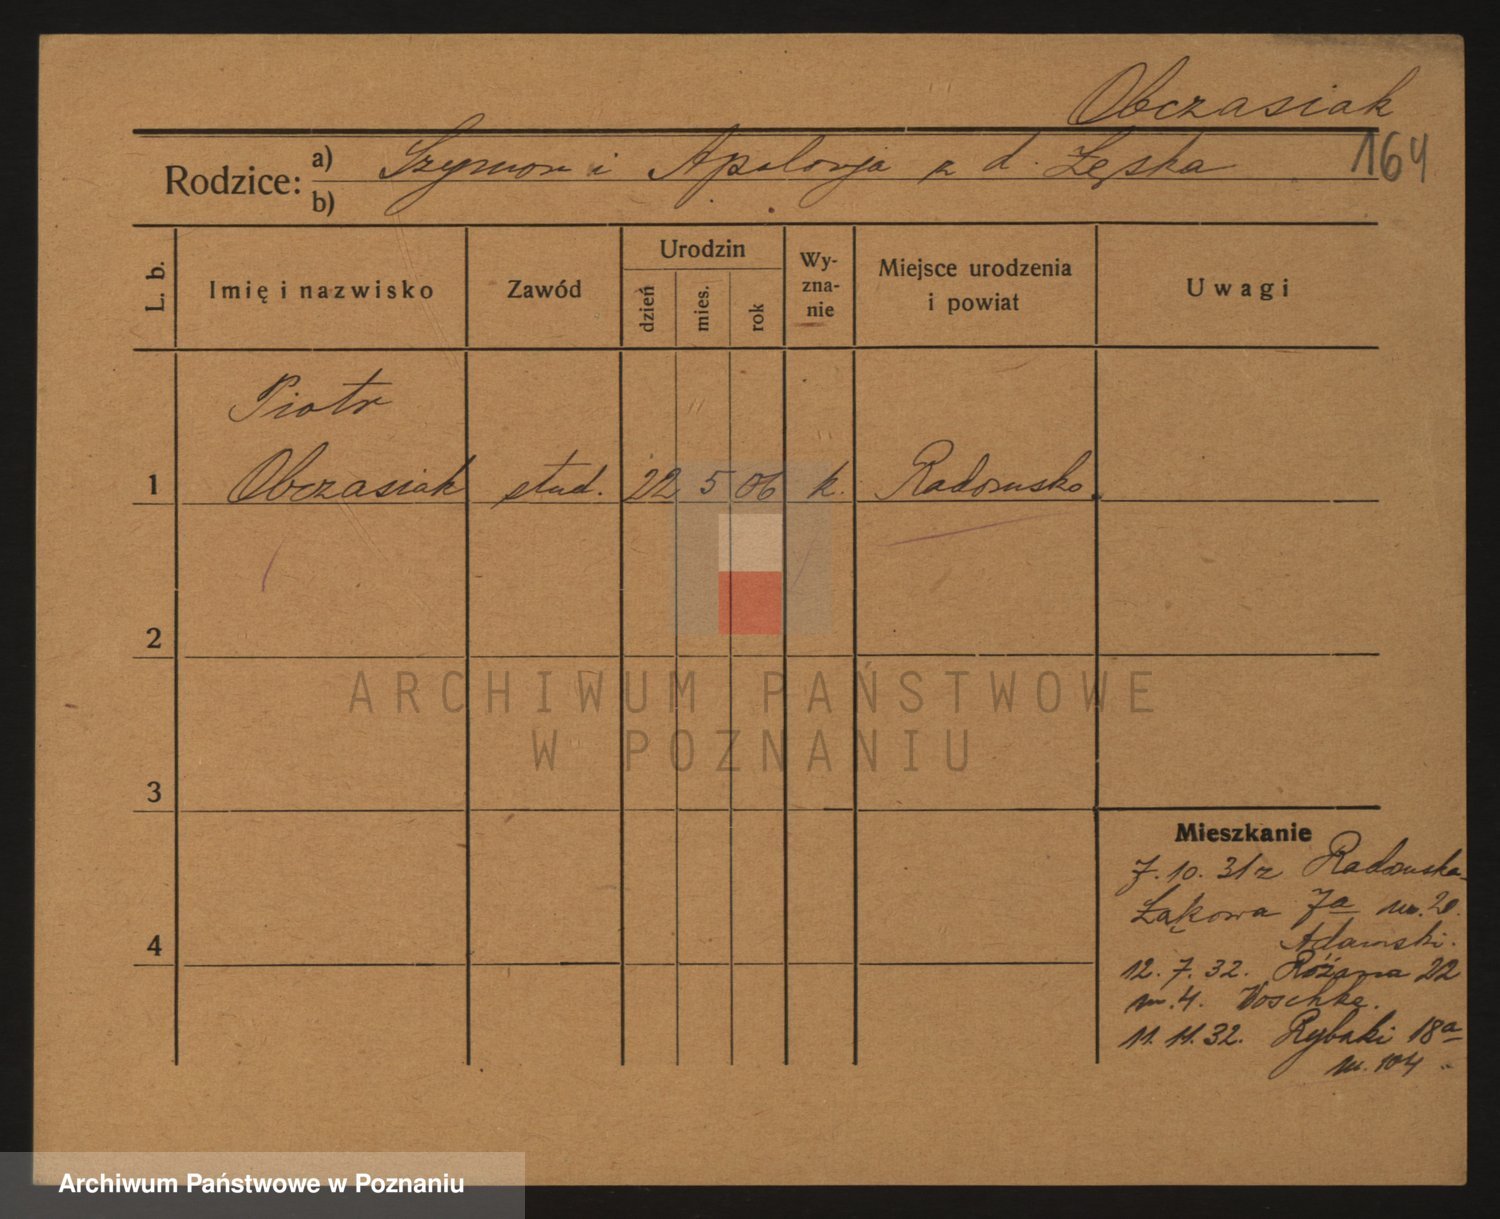 Obczasiak
164
Rodzice: a) Szymon i Apolonja z d. Łęska
b)
L. b.
Imię i nazwisko
Zawód
Urodzin
dzień
mies.
rok
Wy-
zna-
nie
Miejsce urodzenia
i powiat
Uwagi
Piotr
1 Obczasiak stud. 22 5 06 k. Radomsko
2
ARCHIWUM PAŃSTWOWE
W POZNANIU
3
4
Mieszkanie
7.10.31 z Radomska-
Łąkowa 7a m. 20.
Adamski.
12.7.32. Różana 22
m.4. Woschke.
11.11.32. Rybaki 18a
m. 104
Archiwum Państwowe w Poznaniu